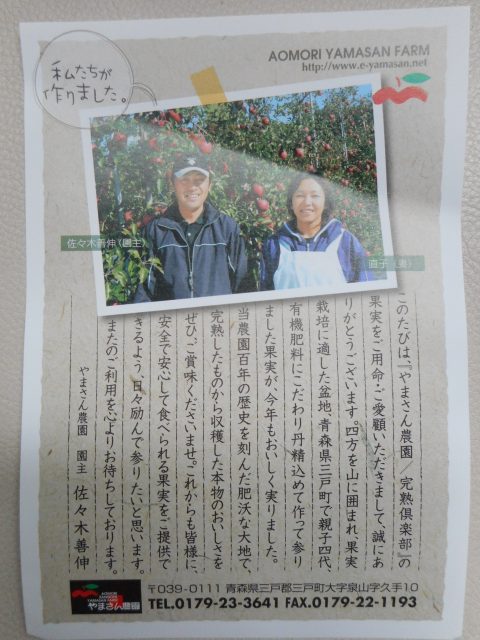 私たちが
作りました。
AOMORI YAMASAN FARM
http://www.e-yamasan.net
佐々木善伸(園主)
直子(妻)
このたびは、『やまさん農園/完熟倶楽部』の
果実をご用命・ご愛顧いただきまして、誠にあ
りがとうございます。四方を山に囲まれ、果実
栽培に適した盆地、青森県三戸町で親子四代、
有機肥料にこだわり丹精込めて作って参り
ました果実が、今年もおいしく実りました。
当農園百年の歴史を刻んだ肥沃な大地で、
完熟したものから収穫した本物のおいしさを
ぜひ、ご賞味くださいませ。これからも皆様に、
安全で安心して食べられる果実をご提供で
きるよう、日々励んで参りたいと思います。
またのご利用を心よりお待ちしております。
やまさん農園 園主 佐々木善伸
AOMORI
YAMASAN FARM
やまさん農園
〒039-0111 青森県三戸郡三戸町大字泉山字久手10
TEL.0179-23-3641 FAX.0179-22-1193